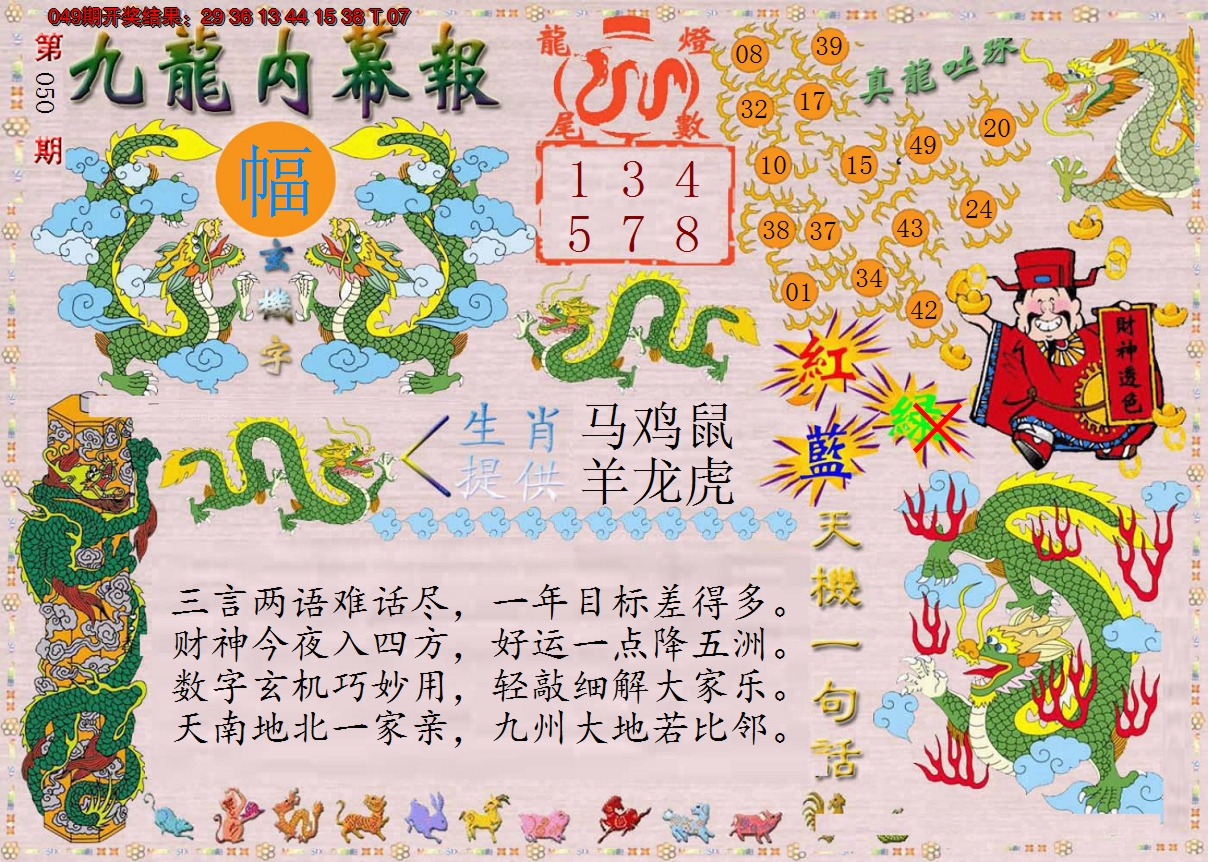 049期开奖结果：29 36 13 44 15 38 T 07
第050期
九龍内幕報
幅
玄機字
龍燈尾數
1 3 4
5 7 8
真龍吐珠
08
39
32
17
20
49
10
15
24
38
37
43
34
01
42
紅
綠
藍
財神透色
生肖 马鸡鼠
提供 羊龙虎
天機一句话
三言两语难话尽，一年目标差得多。
财神今夜入四方，好运一点降五洲。
数字玄机巧妙用，轻敲细解大家乐。
天南地北一家亲，九州大地若比邻。